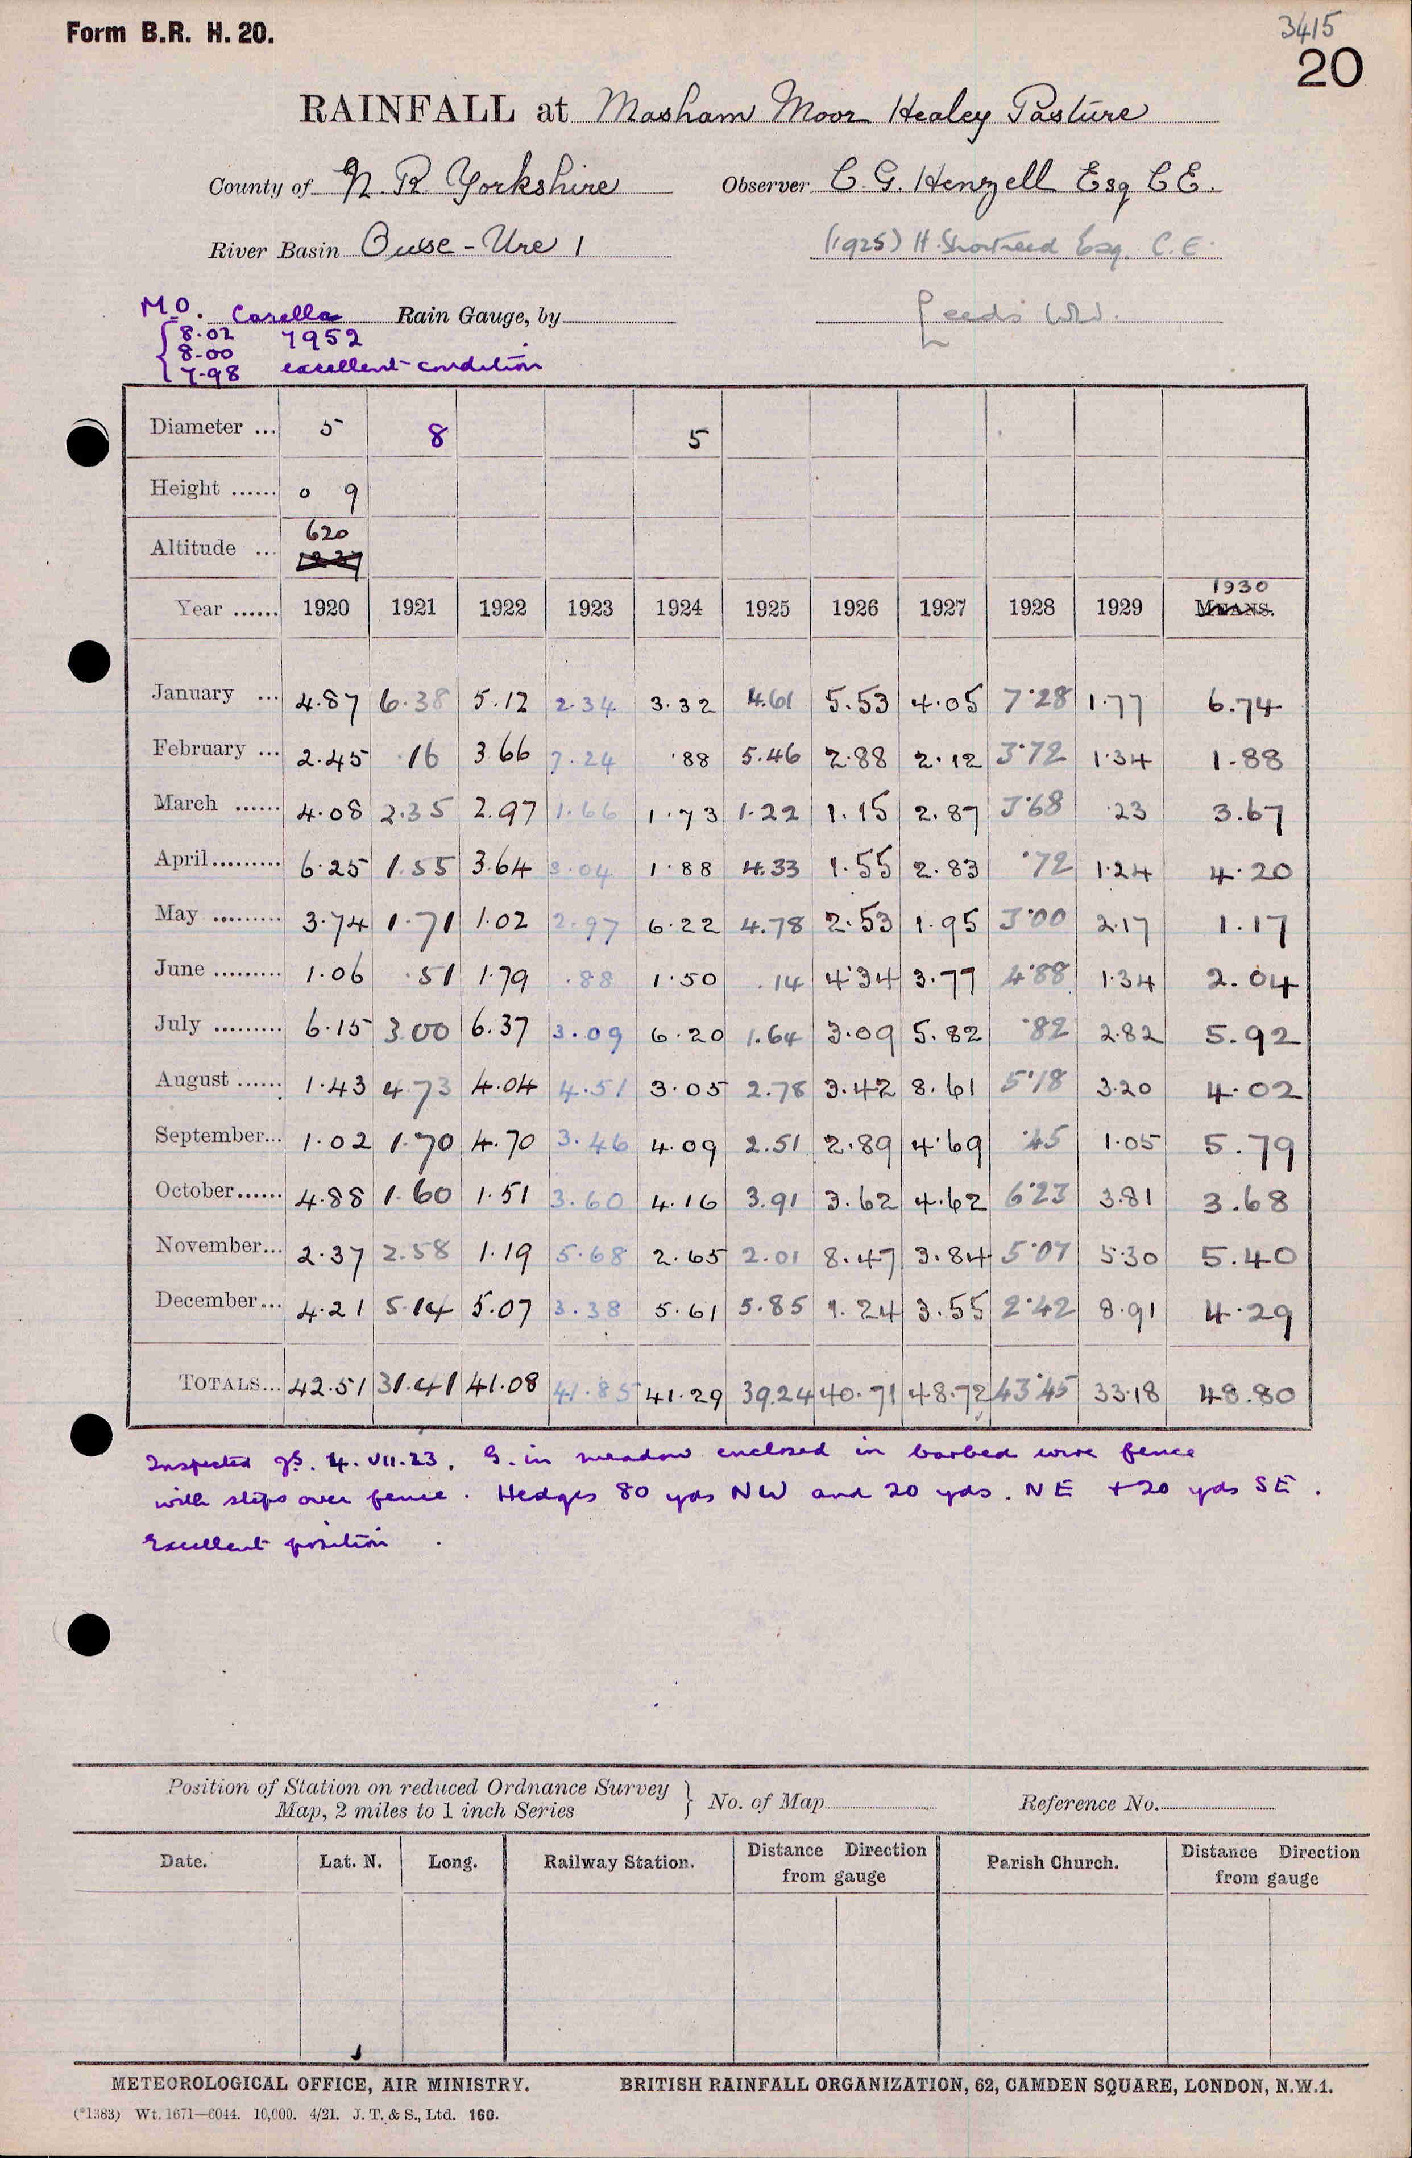 Form B.R. H. 20.
3415
20
RAINFALL at Masham Moor Healey Pasture
County of N. R Yorkshire Observer C. G. Henzell Esq C E.
River Basin Ouse - Ure 1 (1925) H. Shortreed Esq. C.E.
M.O. Casella Rain Gauge, by Leeds W.W.
8.02 7952
8.00
7.98 excellent condition
Diameter ... 5 8 5
Height ...... 0 9
620
Altitude ...
1930
Year ...... 1920 1921 1922 1923 1924 1925 1926 1927 1928 1929 MEANS.
January ... 4.87 6.38 5.12 2.34 3.32 4.61 5.53 4.05 7.28 1.77 6.74
February ... 2.45 .16 3.66 7.24 .88 5.46 2.88 2.12 3.72 1.34 1.88
March ...... 4.08 2.35 2.97 1.66 1.73 1.22 1.15 2.87 3.68 .23 3.67
April......... 6.25 1.55 3.64 3.04 1.88 4.33 1.55 2.83 .72 1.24 4.20
May ......... 3.74 1.71 1.02 2.97 6.22 4.78 2.53 1.95 3.00 2.17 1.17
June ......... 1.06 .51 1.79 .88 1.50 .14 4.34 3.77 4.88 1.34 2.04
July ......... 6.15 3.00 6.37 3.09 6.20 1.64 3.09 5.82 .82 2.82 5.92
August ...... 1.43 4.73 4.04 4.51 3.05 2.78 3.42 8.61 5.18 3.20 4.02
September... 1.02 1.70 4.70 3.46 4.09 2.51 2.89 4.69 .45 1.05 5.79
October...... 4.88 1.60 1.51 3.60 4.16 3.91 3.62 4.62 6.23 3.81 3.68
November... 2.37 2.58 1.19 5.68 2.65 2.01 8.47 3.84 5.07 5.30 5.40
December... 4.21 5.14 5.07 3.38 5.61 5.85 1.24 3.55 2.42 8.91 4.29
TOTALS... 42.51 31.41 41.08 41.85 41.29 39.24 40.71 48.72 43.45 33.18 48.80
Inspected 4.VII.23. G. in meadow enclosed in barbed wire fence
with steps over fence. Hedges 80 yds NW and 20 yds. NE + 20 yds SE.
Excellent position.
Position of Station on reduced Ordnance Survey
Map, 2 miles to 1 inch Series } No. of Map Reference No.
Date. Lat. N. Long. Railway Station. Distance Direction from gauge Parish Church. Distance Direction from gauge
METEOROLOGICAL OFFICE, AIR MINISTRY. BRITISH RAINFALL ORGANIZATION, 62, CAMDEN SQUARE, LONDON, N.W.1.
(*1383) Wt. 1671—6044. 10,000. 4/21. J. T. & S., Ltd. 160.